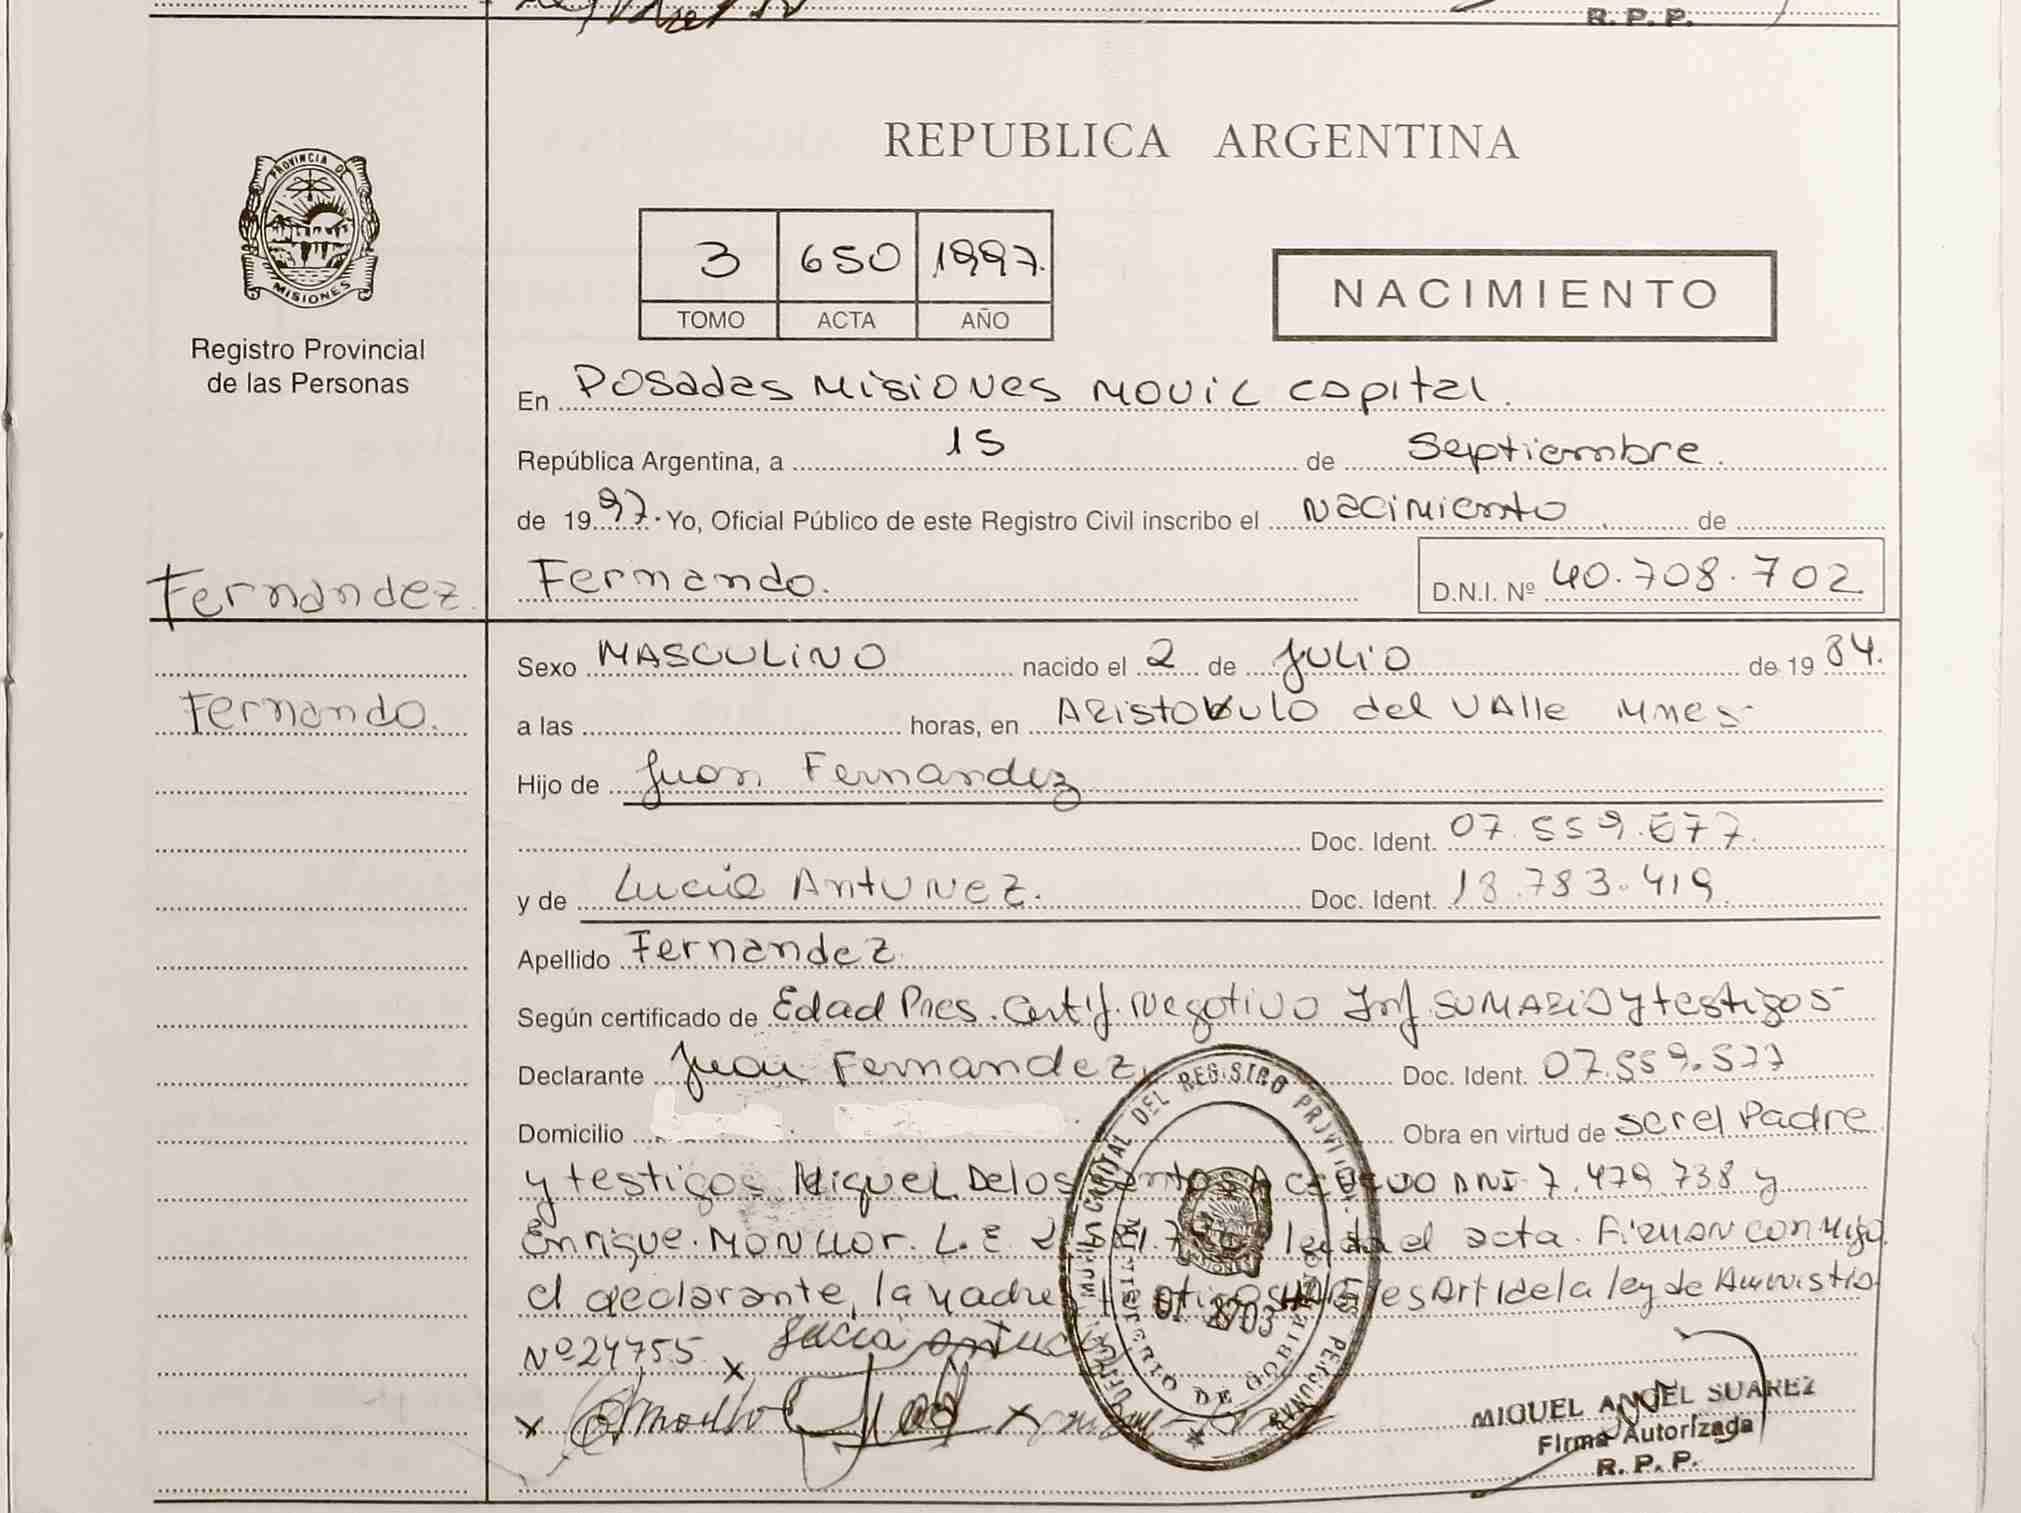 R. P. P.
PROVINCIA DE
MISIONES
Registro Provincial
de las Personas
Fernandez.
Fernando.
REPUBLICA ARGENTINA
3 650 1997.
TOMO ACTA AÑO
NACIMIENTO
En Posadas Misiones Movil Capital.
República Argentina, a 15 de Septiembre.
de 1997. Yo, Oficial Público de este Registro Civil inscribo el Nacimiento de
Fernando. D.N.I. Nº 40.708.702
Sexo MASCULINO nacido el 2 de JULIO de 1984.
a las horas, en ARistobulo del VAlle Mnes
Hijo de Juan Fernandez
Doc. Ident. 07.559.577.
y de Lucia Antunez. Doc. Ident. 18.783.419
Apellido Fernandez
Según certificado de Edad Pres. Certif. Negativo Inf SUMARIO y testigos
Declarante Juan Fernandez Doc. Ident. 07.559.577
Domicilio Obra en virtud de ser el Padre
y testigos Miguel De los DNI 7.479.738 y
Enrique Monllor. L.E. el acta Firman conmigo
el declarante, la Madre Art 1 de la ley de Amnistia
Nº 24755
Lucia
CAPITAL DEL REGISTRO PROVINCIAL DE LAS PERSONAS
MINISTERIO DE GOBIERNO
MIGUEL ANGEL SUAREZ
Firma Autorizada
R. P. P.